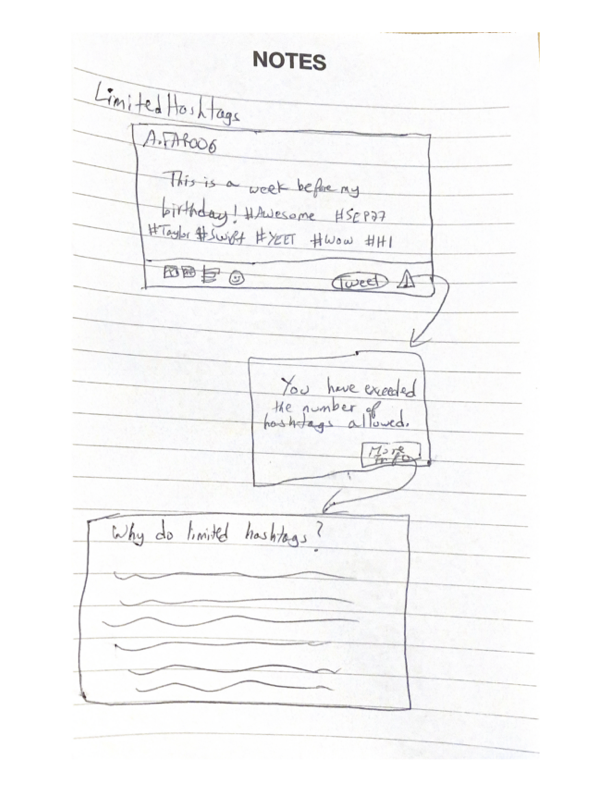 NOTES
Limited Hashtags
A.FAROO6
This is a week before my
birthday! #Awesome #SEP27
#Taylor #Swift #YEET #Wow #HI
Tweet
You have exeeded
the number of
hashtags allowed.
More
info
Why do limited hashtags?